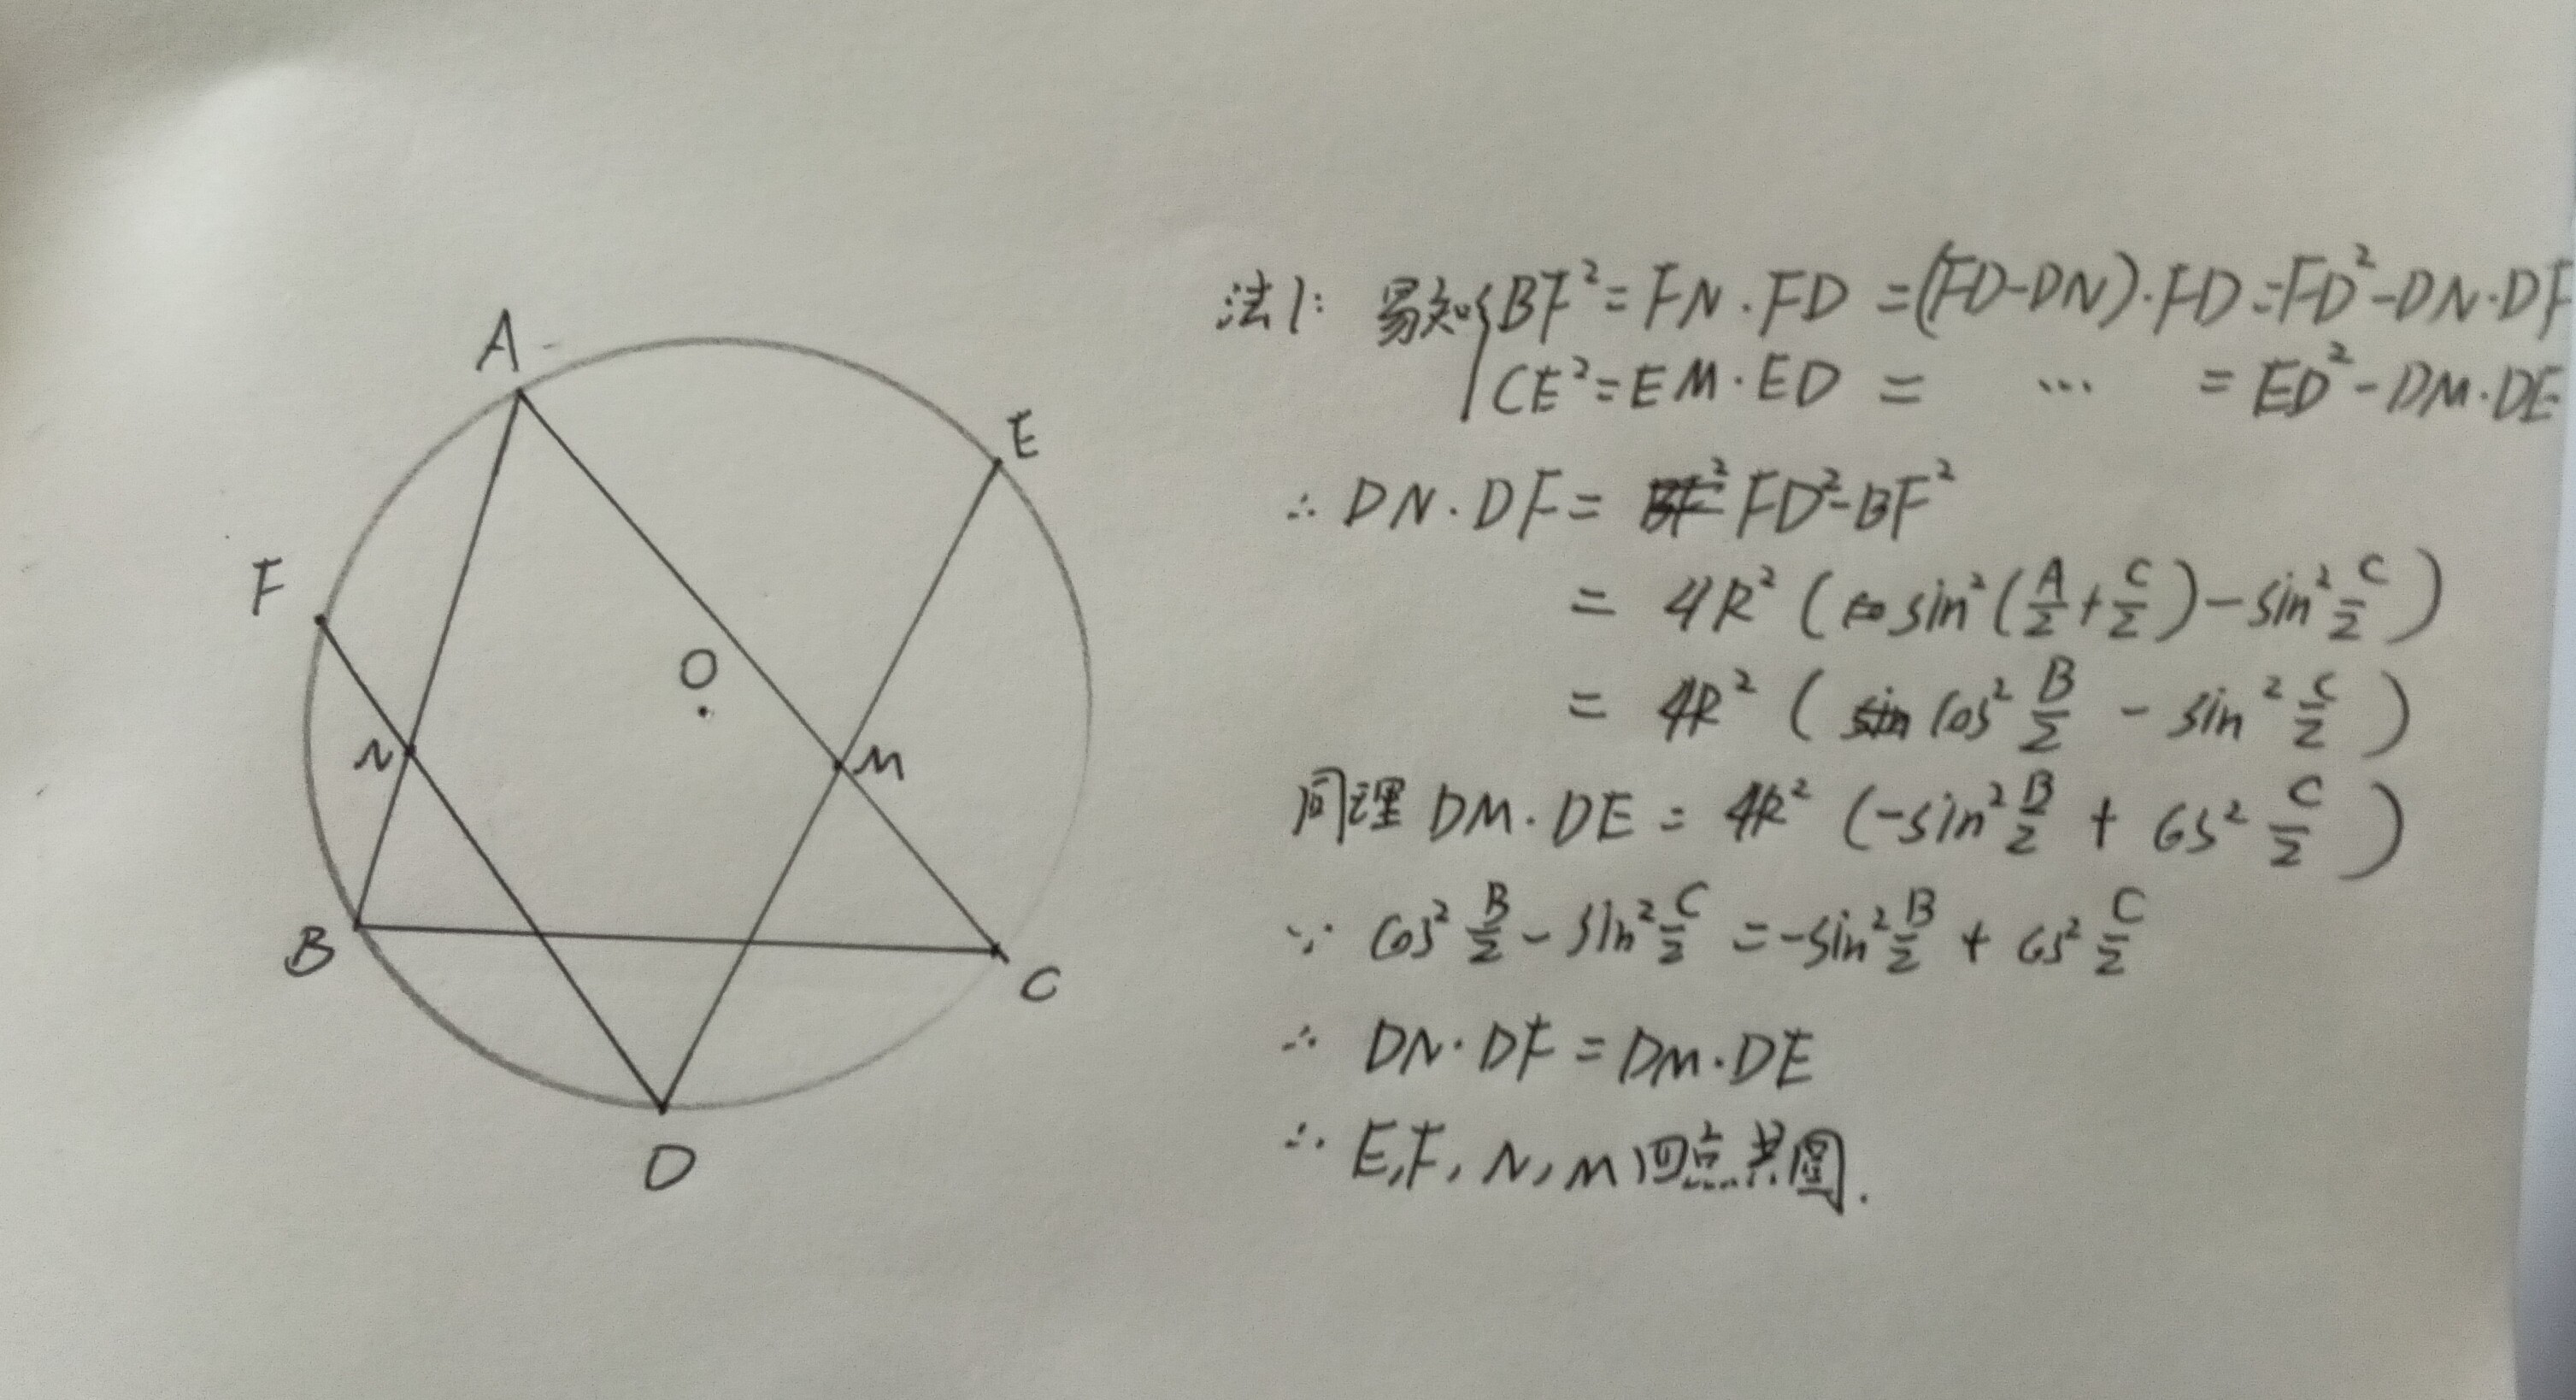 A
E
F
O
N
M
B
C
D
法1: 易知{BF²=FN·FD=(FD-DN)·FD=FD²-DN·DF
CE²=EM·ED= ... =ED²-DM·DE
∴ DN·DF= FD²-BF²
= 4R²(sin²(A/2+C/2)-sin²C/2)
= 4R²(cos²B/2-sin²C/2)
同理 DM·DE=4R²(-sin²B/2+cos²C/2)
∵ cos²B/2-sin²C/2=-sin²B/2+cos²C/2
∴ DN·DF=DM·DE
∴ E,F,N,M四点共圆.